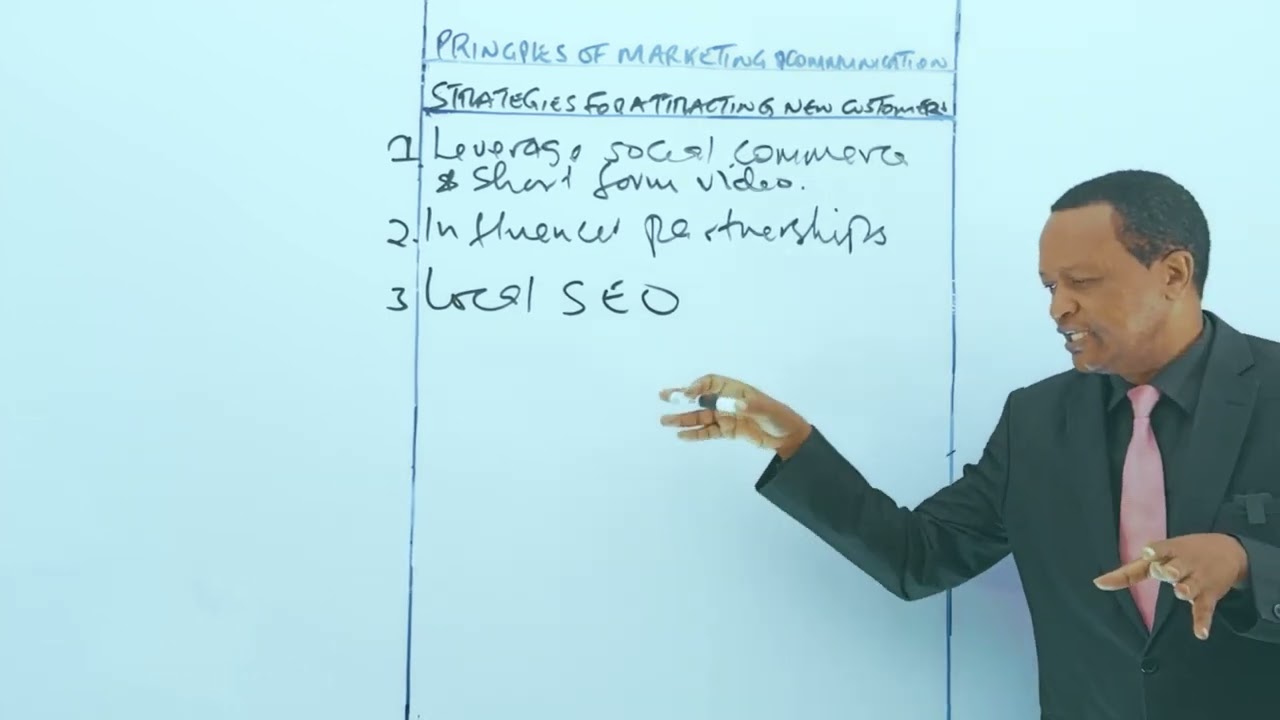 PRINCIPLES OF MARKETING & COMMUNICATION
STRATEGIES FOR ATTRACTING NEW CUSTOMERS
1 Leverage social commerce
& Short form video.
2. Influencer partnerships
3 Local SEO